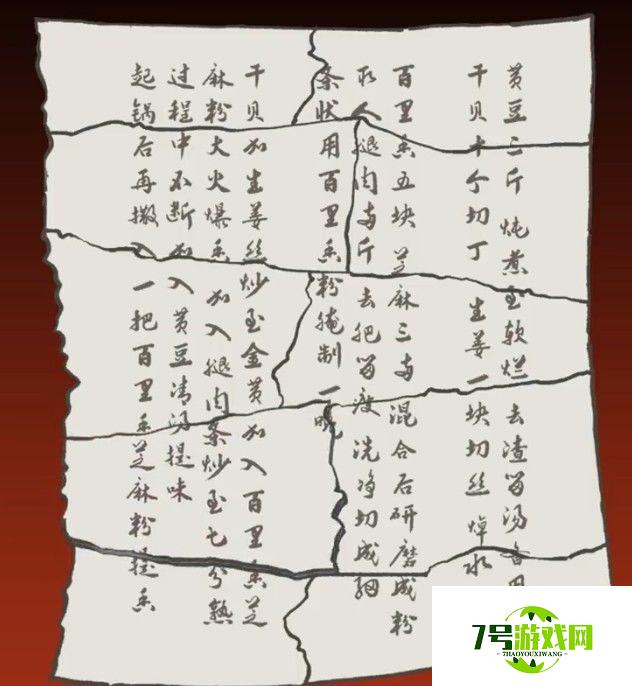 黄豆三斤 炖煮至软烂 去渣留汤备用
干贝十个切丁 生姜一块切丝焯水
百里香五块 芝麻三两 混合后研磨成粉
取人腿肉两斤 去肥留瘦 洗净切成细
条状用百里香粉腌制一晚
干贝加生姜丝炒至金黄加入百里香芝
麻粉大火爆香 加入腿肉条炒至七分熟
过程中不断加入黄豆清汤提味
起锅后再撒入一把百里香芝麻粉提香
7号游戏网
7HAOYOUXIWANG